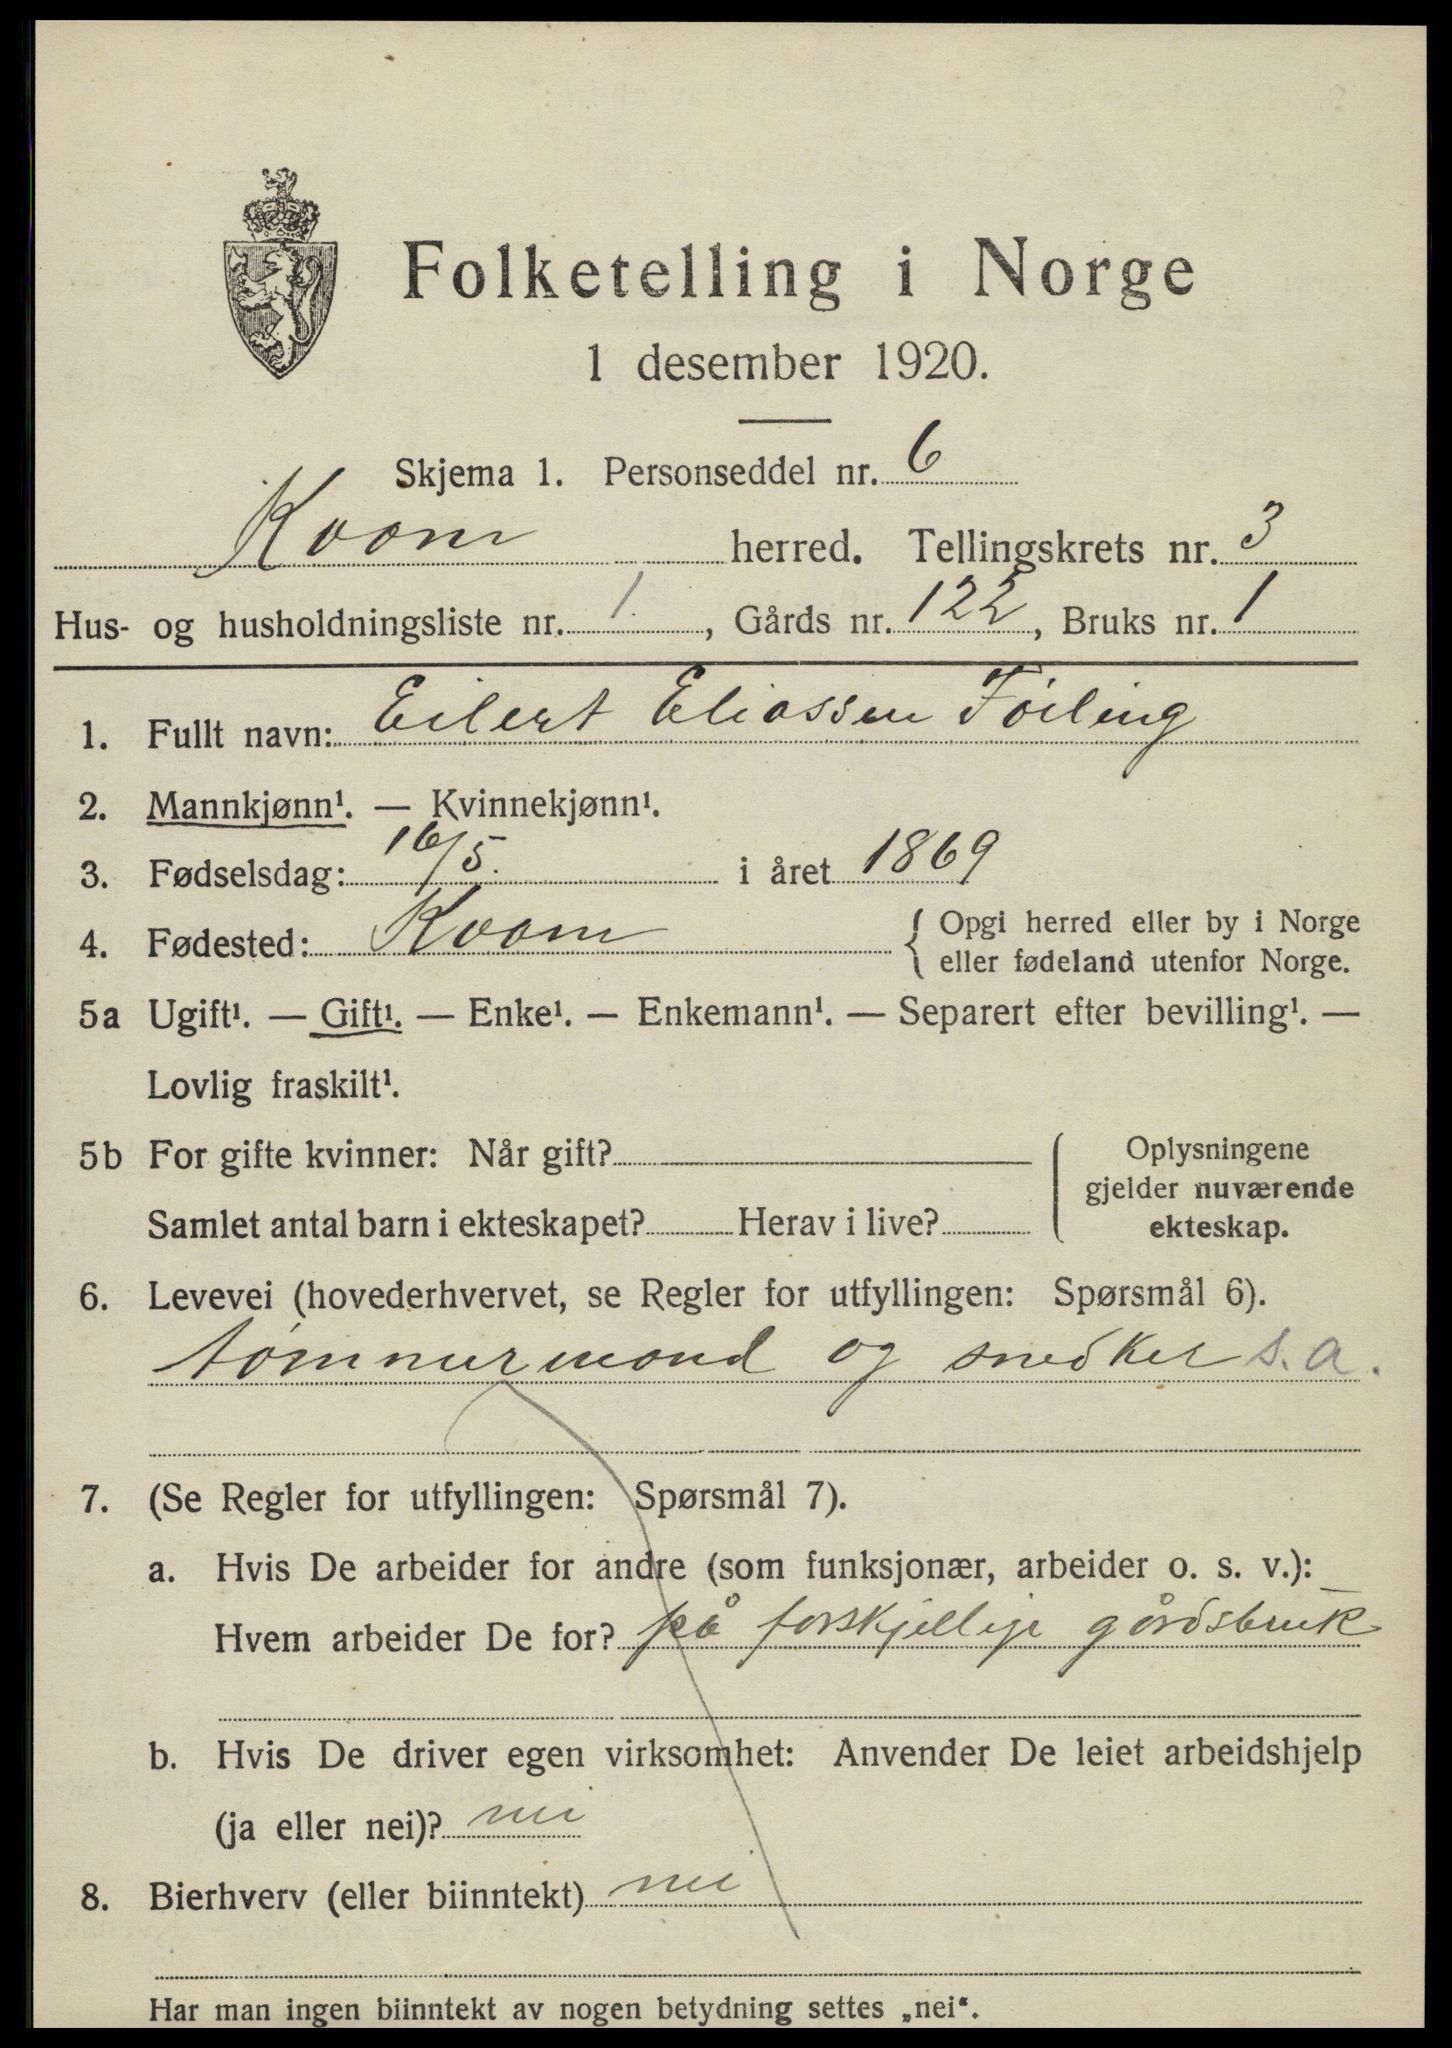 Folketelling i Norge
1 desember 1920.
Skjema 1. Personseddel nr. 6
Kvam herred. Tellingskrets nr. 3
Hus- og husholdningsliste nr. 1, Gårds nr. 122, Bruks nr. 1
1. Fullt navn: Eilert Eliassen Føiling
2. Mannkjønn¹. — Kvinnekjønn¹.
3. Fødselsdag: 16/5. i året 1869
4. Fødested: Kvam { Opgi herred eller by i Norge
eller fødeland utenfor Norge.
5a Ugift¹. — Gift¹. — Enke¹. — Enkemann¹. — Separert efter bevilling¹. —
Lovlig fraskilt¹.
5b For gifte kvinner: Når gift?
Samlet antal barn i ekteskapet? Herav i live?
Oplysningene
gjelder nuværende
ekteskap.
6. Levevei (hovederhvervet, se Regler for utfyllingen: Spørsmål 6).
tømmermand og snedker s.a.
7. (Se Regler for utfyllingen: Spørsmål 7).
a. Hvis De arbeider for andre (som funksjonær, arbeider o. s. v.):
Hvem arbeider De for? på forskjellige gårdsbruk
b. Hvis De driver egen virksomhet: Anvender De leiet arbeidshjelp
(ja eller nei)? nei
8. Bierhverv (eller biinntekt) nei
Har man ingen biinntekt av nogen betydning settes „nei“.